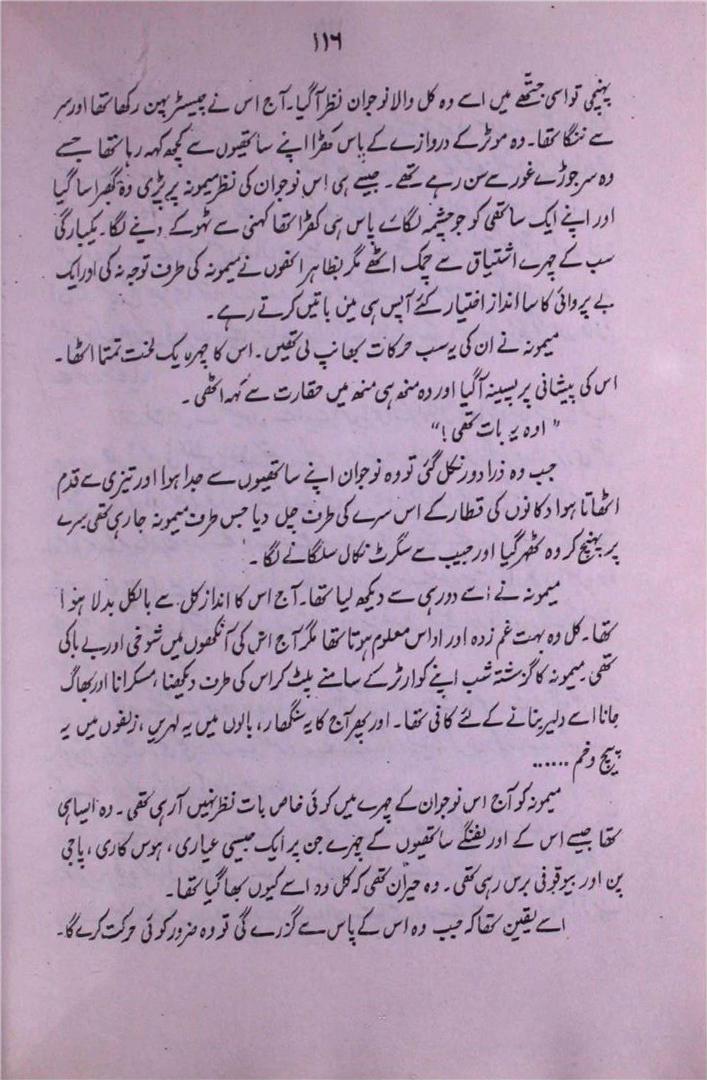 ۱۱۶
پہنچی تو اسی جتھے میں اسے وہ کل والا نوجوان نظر آگیا۔ آج اس نے چیسٹر پہن رکھا تھا اور سر
سے ننگا تھا۔ وہ موٹر کے دروازے کے پاس کھڑا اپنے ساتھیوں سے کچھ کہہ رہا تھا جسے
وہ سر جوڑے غور سے سن رہے تھے۔ جیسے ہی اس نوجوان کی نظر میمونہ پر پڑی وہ گھبرا سا گیا
اور اپنے ایک ساتھی کو جو چشمہ لگائے پاس ہی کھڑا تھا کہنی سے ٹھوکے دینے لگا۔ یکبارگی
سب کے چہرے اشتیاق سے چمک اٹھے مگر بظاہر انھوں نے میمونہ کی طرف توجہ نہ کی اور ایک
بے پروائی کا سا انداز اختیار کئے آپس ہی میں باتیں کرتے رہے۔
میمونہ نے ان کی یہ سب حرکات بھانپ لی تھیں۔ اس کا چہرہ یک لخت تمتما اٹھا۔
اس کی پیشانی پر پسینہ آگیا اور وہ منھ ہی منھ میں حقارت سے کہہ اٹھی۔
"اوہ یہ بات تھی!"
جب وہ ذرا دور نکل گئی تو وہ نوجوان اپنے ساتھیوں سے جدا ہوا اور تیزی سے قدم
اٹھاتا ہوا دکانوں کی قطار کے اس سرے کی طرف چل دیا جس طرف میمونہ جا رہی تھی سرے
پر پہنچ کر وہ ٹھہر گیا اور جیب سے سگرٹ نکال سلگانے لگا۔
میمونہ نے اسے دور ہی سے دیکھ لیا تھا۔ آج اس کا انداز کل سے بالکل بدلا ہوا
تھا۔ کل وہ بہت غم زدہ اور اداس معلوم ہوتا تھا مگر آج اس کی آنکھوں میں شوخی اور بے باکی
تھی۔ میمونہ کا گزشتہ شب اپنے کوارٹر کے سامنے پلٹ کر اس کی طرف دیکھنا، مسکرانا اور بھاگ
جانا اسے دلیر بنانے کے لئے کافی تھا۔ اور پھر آج کا یہ سنگھار، بالوں میں یہ لہریں، زلفوں میں یہ
پیچ و خم ......
میمونہ کو آج اس نوجوان کے چہرے میں کوئی خاص بات نظر نہیں آرہی تھی۔ وہ ایسا ہی
تھا جیسے اس کے اور لفنگے ساتھیوں کے چہرے جن پر ایک جیسی عیاری، ہوس کاری، پاجی
پن اور بیوقوفی برس رہی تھی۔ وہ حیران تھی کہ کل وہ اسے کیوں بھا گیا تھا۔
اسے یقین تھا کہ جب وہ اس کے پاس سے گزرے گی تو وہ ضرور کوئی حرکت کرے گا۔